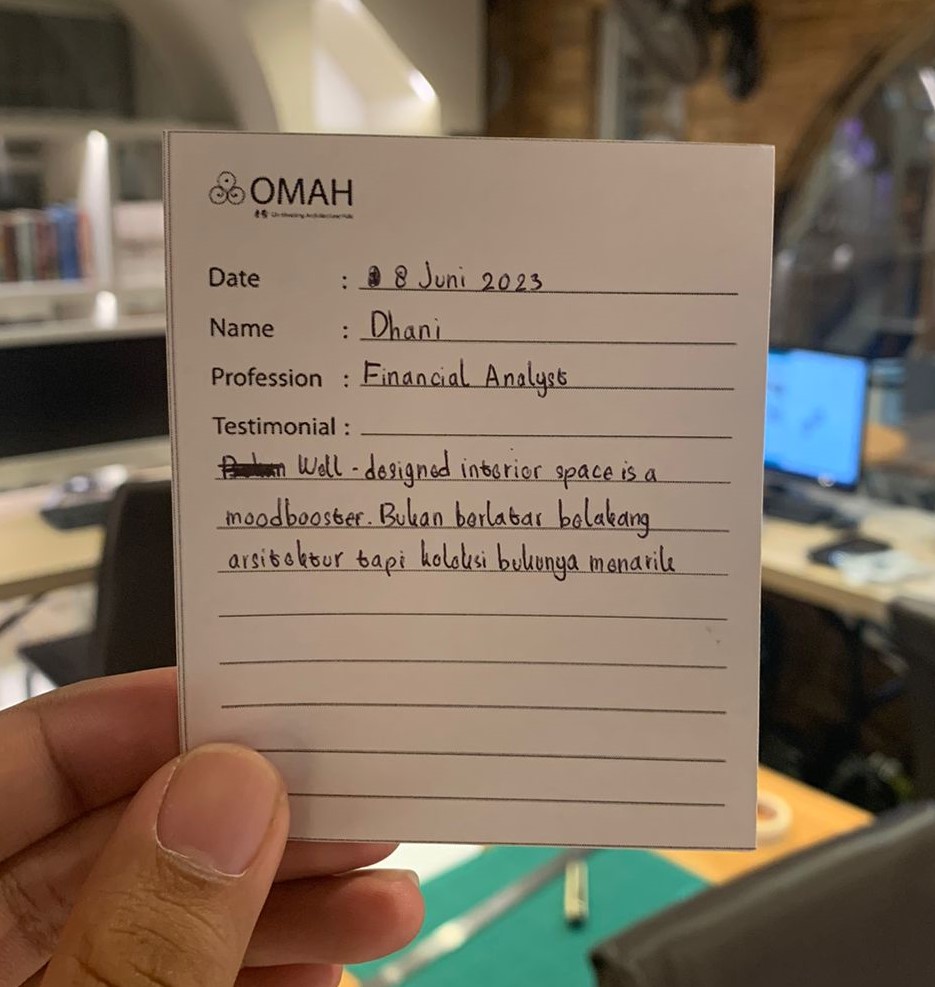 OMAH
Date : 8 Juni 2023
Name : Dhani
Profession : Financial Analyst
Testimonial :
Well - designed interior space is a
moodbooster. Bukan berlatar belakang
arsitektur tapi koleksi bukunya menarik